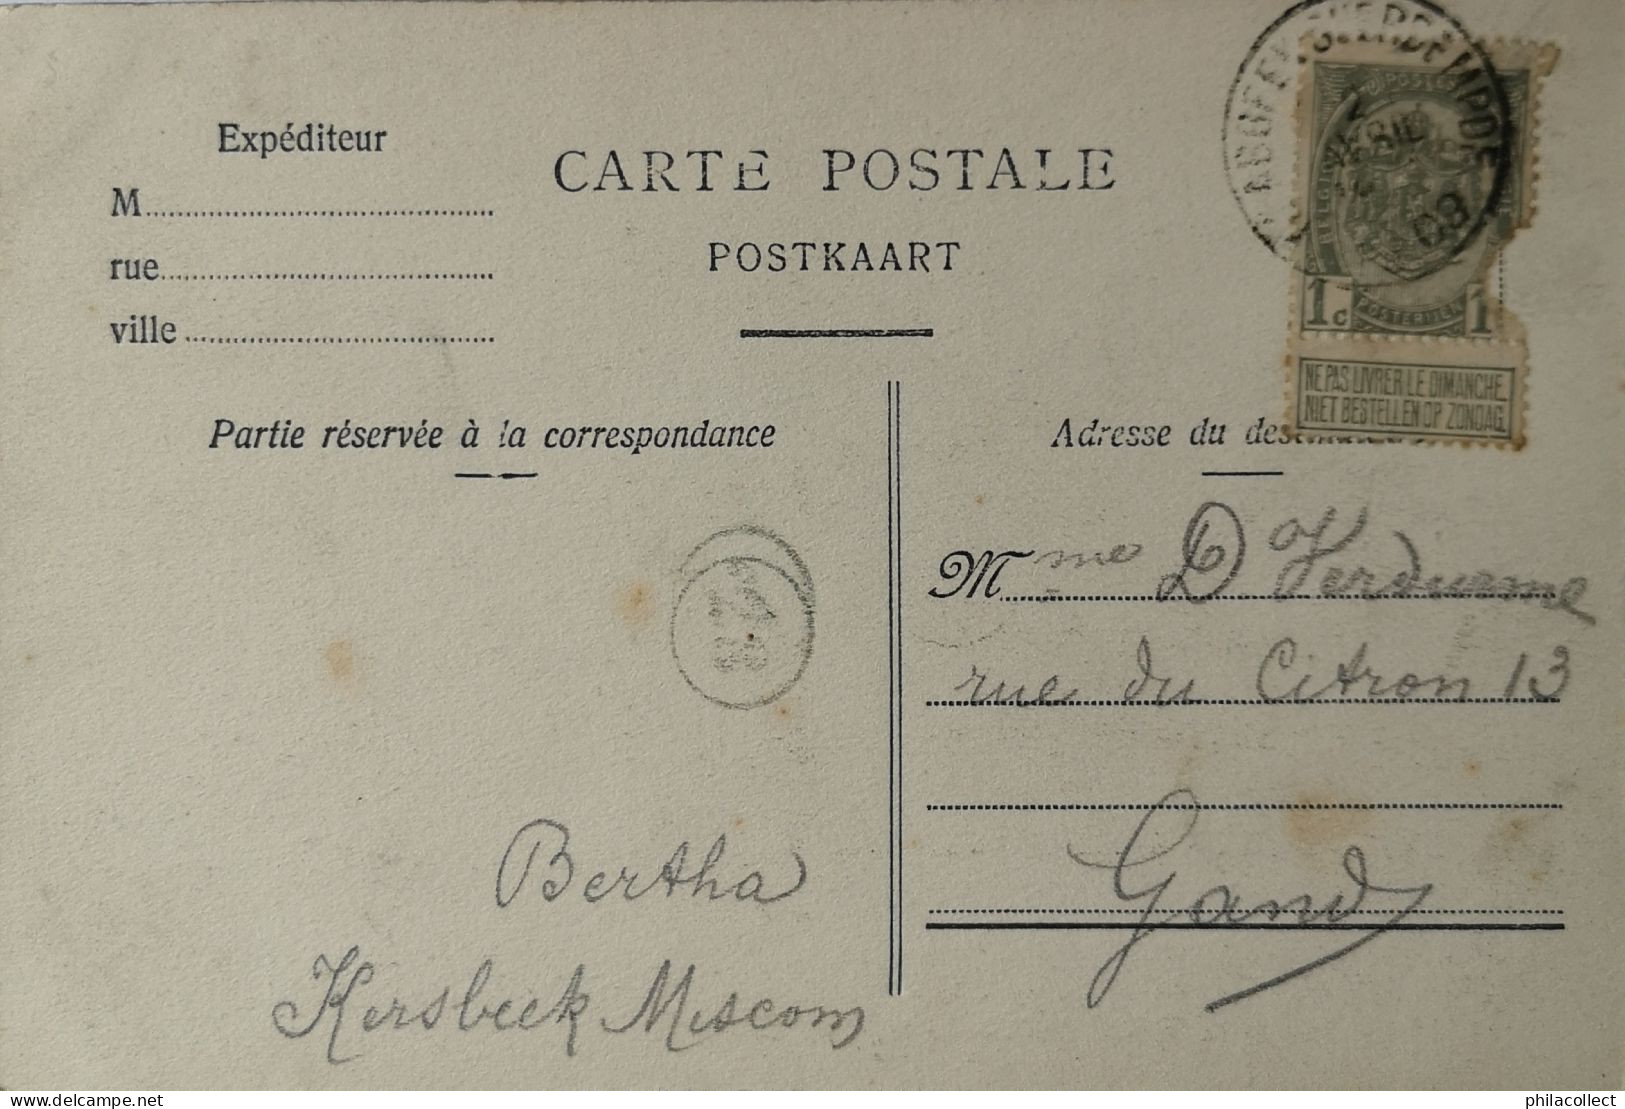 Expéditeur
M
rue
ville
CARTE POSTALE
POSTKAART
POSTES
1c
POSTERIJEN
1
08
NE PAS LIVRER LE DIMANCHE
NIET BESTELLEN OP ZONDAG
Partie réservée à la correspondance
Adresse du
Mme D. Verduesme
rue du Citron 13
Gand
Bertha
Kersbeek Miscom
delcampe.net
philacollect